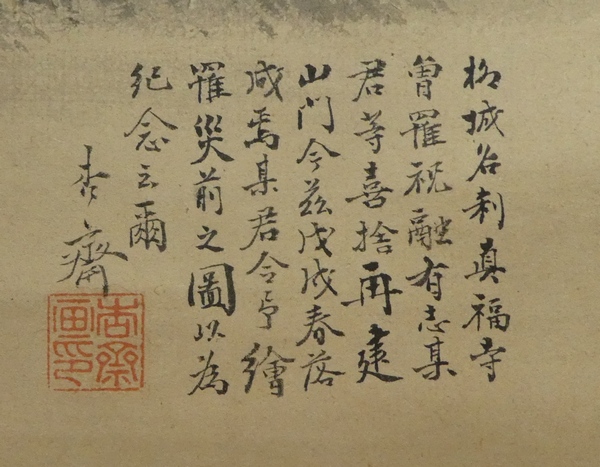 柳城名刹真福寺
曽罹祝融有志某
君等喜捨再建
山門今茲戊戌春落
成焉某君令予繪
罹災前之圖以為
紀念云爾
杏齋
杏齋
画印